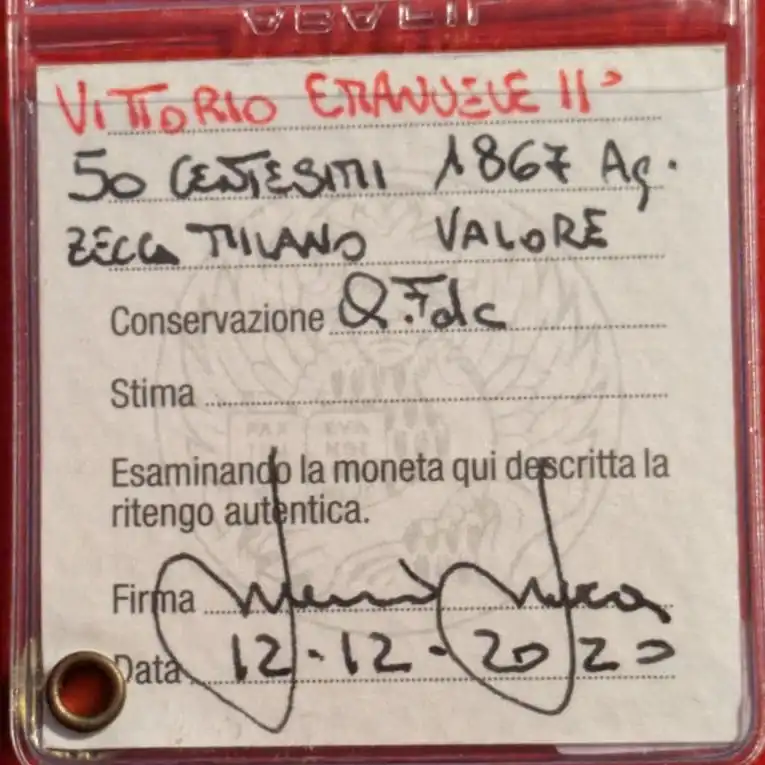 VITTORIO EMANUELE II°
50 CENTESIMI 1867 Ag.
ZECCA MILANO VALORE
Conservazione Q.Fdc
Stima
Esaminando la moneta qui descritta la
ritengo autentica.
Firma
Data 12-12-2020
PAX EVA